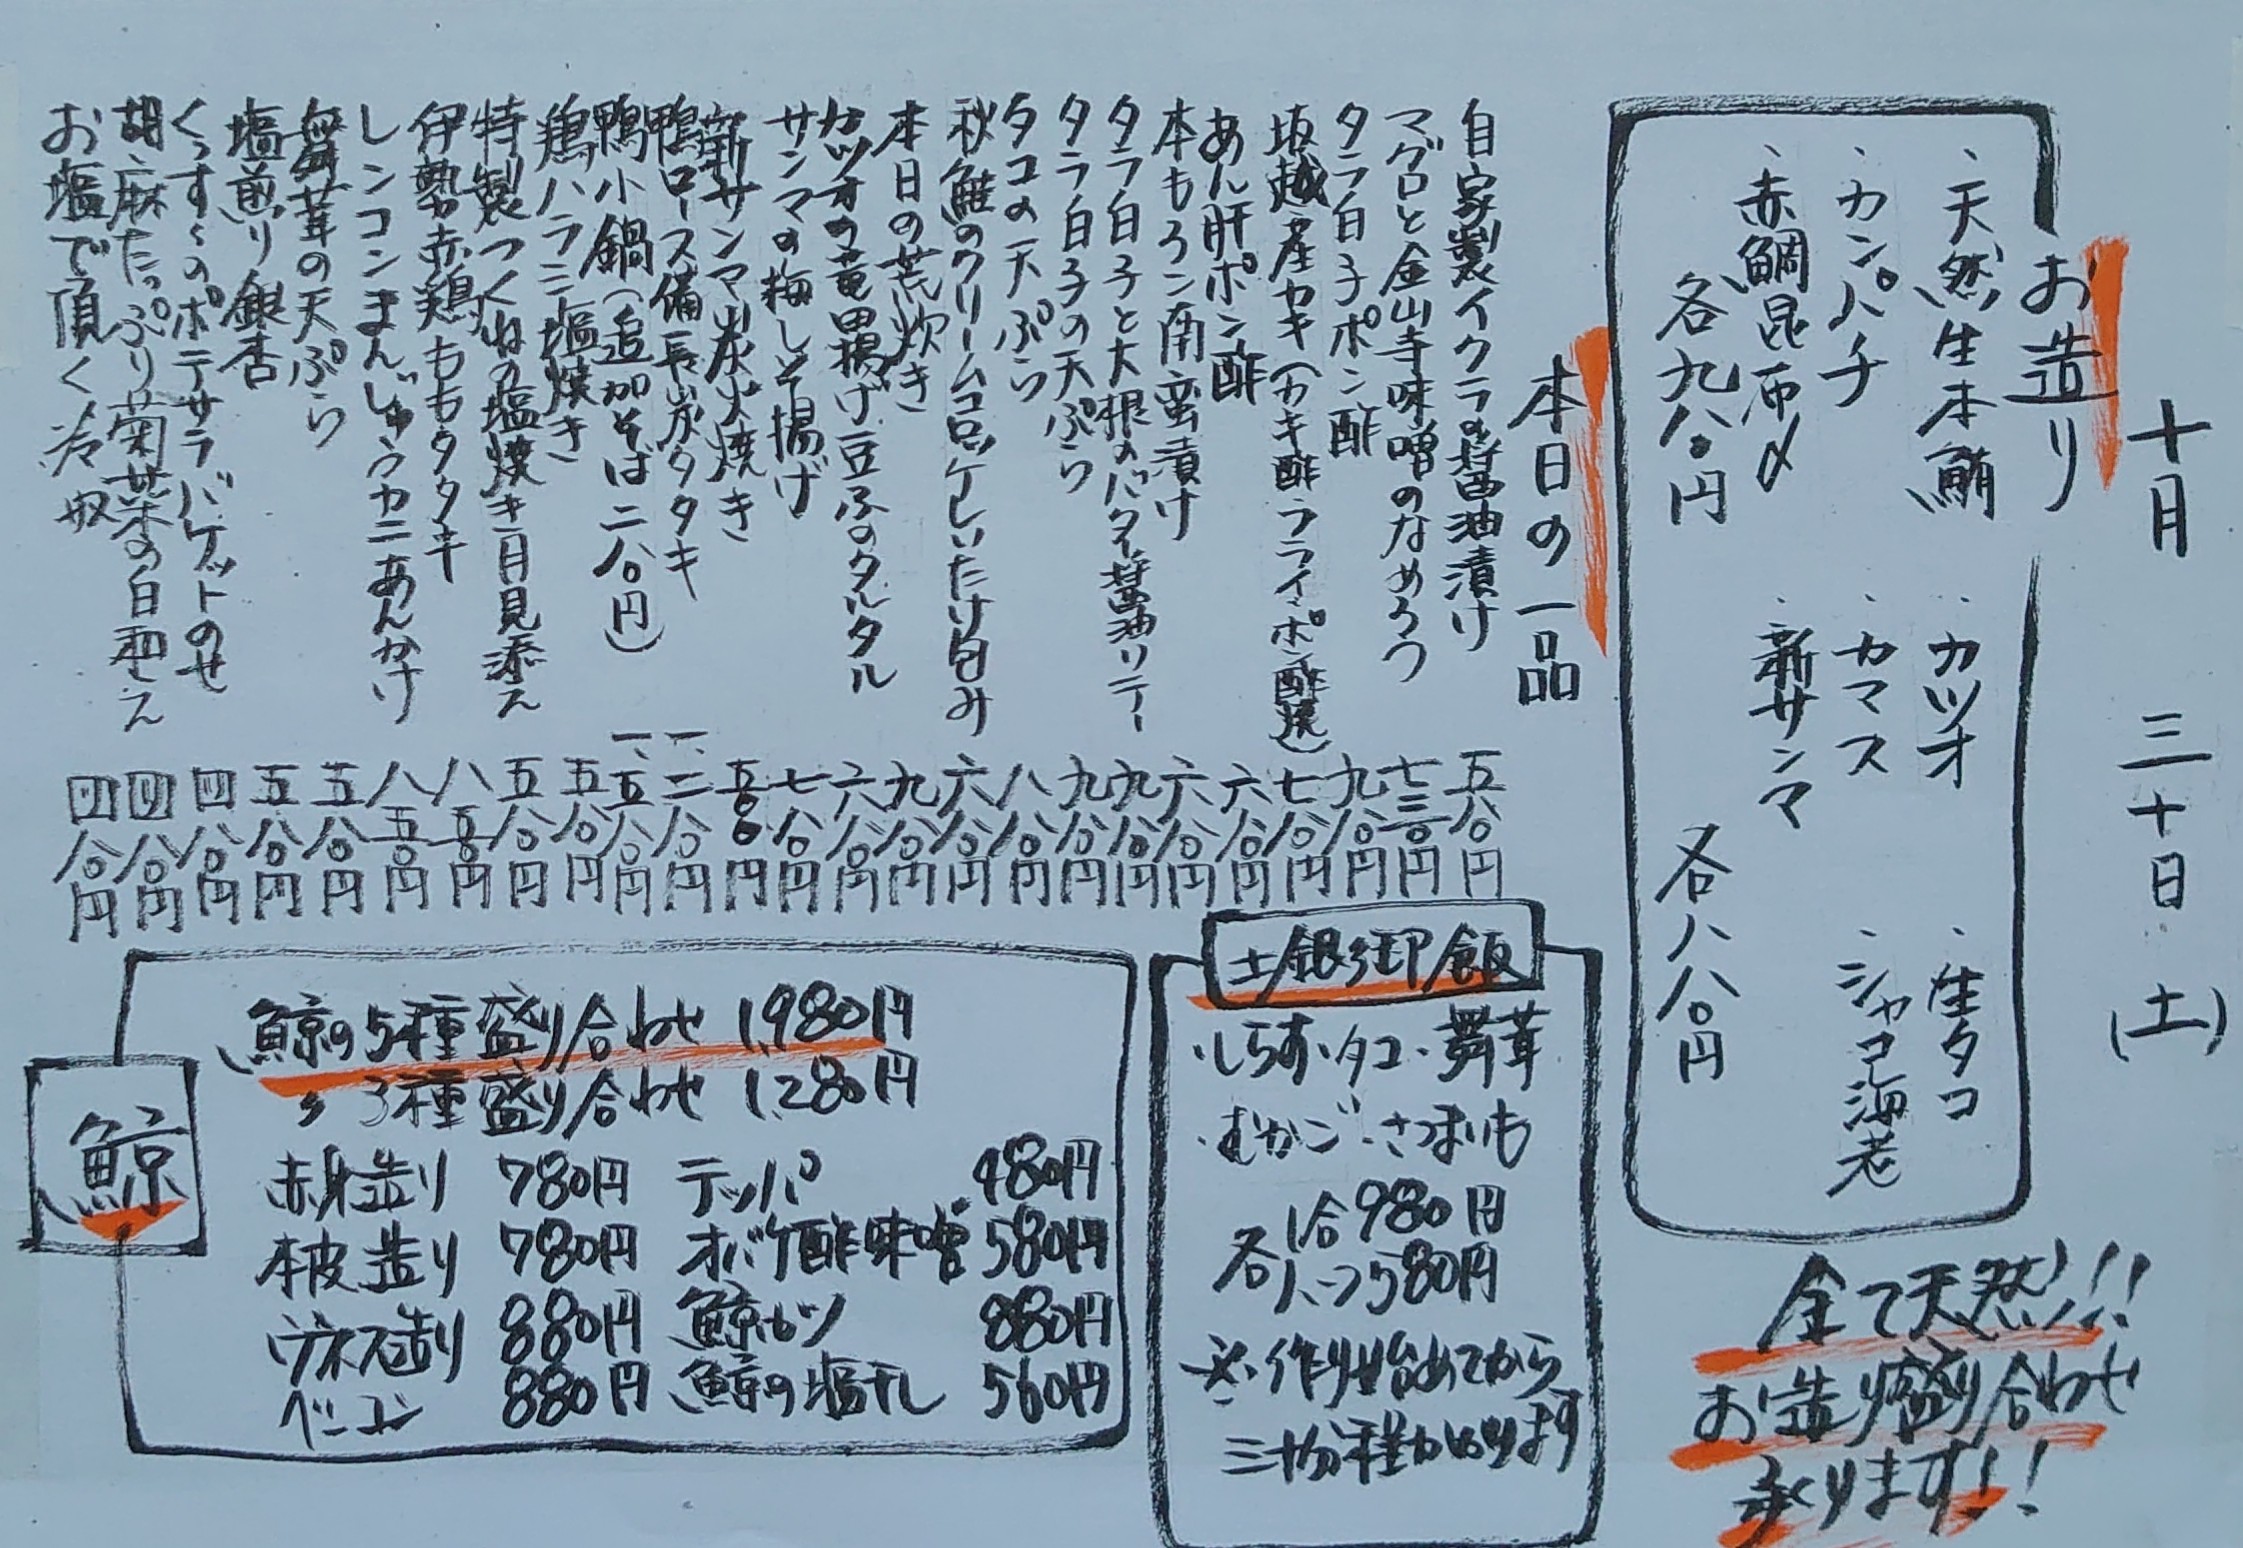 十月 三十日 (土)
お造り
・天然生本鮪
・カンパチ
・赤鯛昆布〆
各九八〇円
・カツオ
・カマス
・新サンマ
・生タコ
・シャコ海老
各八八〇円
全て天然!!
お造り盛り合わせ
承ります!!
本日の一品
自家製イクラの醤油漬け 五八〇円
マグロと金山寺味噌のなめろう 七三〇円
タラ白子ポン酢 九八〇円
坂越産カキ(カキ酢フライ・ポン酢焼) 七八〇円
あん肝ポン酢 六八〇円
本もろこ南蛮漬け 六八〇円
タラ白子と大根のバター醤油ソテー 九八〇円
タラ白子の天ぷら 九八〇円
タコの天ぷら 八八〇円
秋鮭のクリームコロッケしいたけ包み 六八〇円
本日の荒炊き 九八〇円
カツオの竜田揚げ豆ふのタルタル 六八〇円
サンマの梅しそ揚げ 七八〇円
新サンマ炭火焼き 五〇〇円
鴨ロース備長炭タタキ 一、二八〇円
鴨小鍋(追加そば二八〇円) 一、五八〇円
鶏ハラミ塩焼き 五八〇円
特製つくねの塩焼き月見添え 五八〇円
伊勢赤鶏ももタタキ 八五〇円
レンコンまんじゅうカニあんかけ 八五〇円
舞茸の天ぷら 五八〇円
塩煎り銀杏 五八〇円
くんすいのポテサラバケットのせ 四八〇円
胡麻たっぷり菊菜の白和え 四八〇円
お塩で頂く冷奴 四八〇円
土鍋御飯
・しらす・タコ・舞茸
・むかご・さつまいも
各1合980円
各ハーフ580円
※作り始めてから
三十分程かかります
鯨
鯨の5種盛り合わせ 1,980円
〃 3種盛り合わせ 1,280円
赤身造り 780円 テッパ 480円
本皮造り 780円 オバケ酢味噌 580円
ウネス造り 880円 鯨カツ 880円
ベーコン 880円 鯨の塩干し 560円